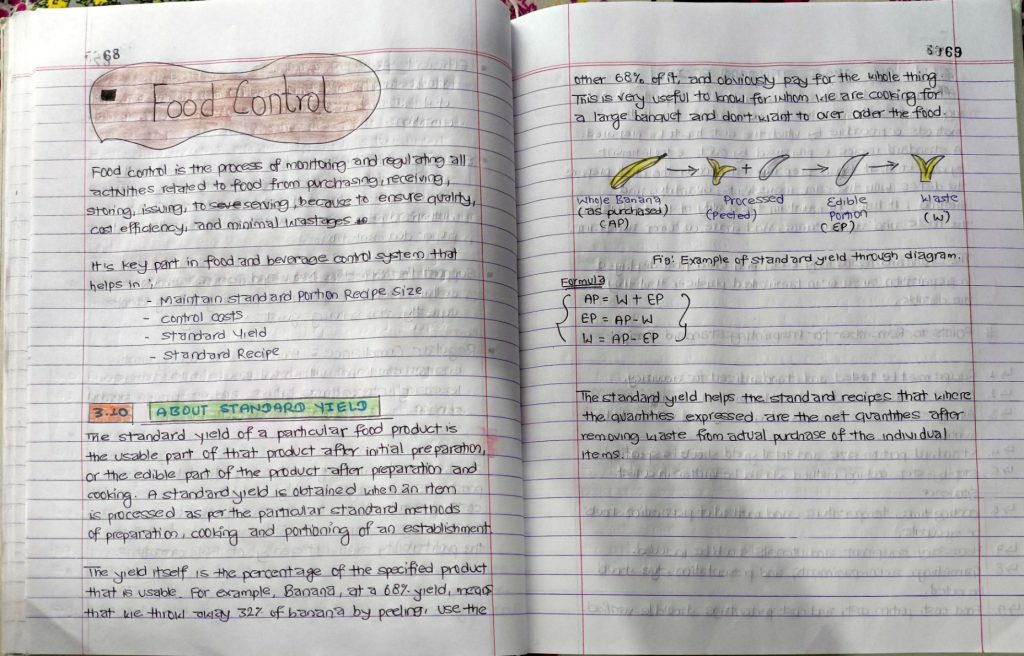 68
Food Control
Food control is the process of monitoring and regulating all
activities related to food from purchasing, receiving,
storing, issuing, to serving, because to ensure quality,
cost efficiency, and minimal wastages
It is key part in food and beverage control system that
helps in :
- Maintain standard Portion Recipe Size
- control costs
- Standard Yield
- Standard Recipe
3.10 ABOUT STANDARD YIELD
The standard yield of a particular food product is
the usable part of that product after initial preparation,
or the edible part of the product after preparation and
cooking. A standard yield is obtained when an item
is processed as per the particular standard methods
of preparation, cooking and portioning of an establishment.
The yield itself is the percentage of the specified product
that is usable. For example, Banana, at a 68% yield, means
that we throw away 32% of banana by peeling, use the
69
other 68% of it, and obviously pay for the whole thing.
This is very useful to know for whom we are cooking for
a large banquet and don't want to over order the food.
→ + → →
Whole Banana Processed Edible Waste
(as purchased) (Peeled) Portion (W)
(AP) (EP)
Fig: Example of standard yield through diagram.
Formula
AP = W + EP
EP = AP - W
W = AP - EP
The standard yield helps the standard recipes that where
the quantities expressed are the net quantities after
removing waste from actual purchase of the individual
items.